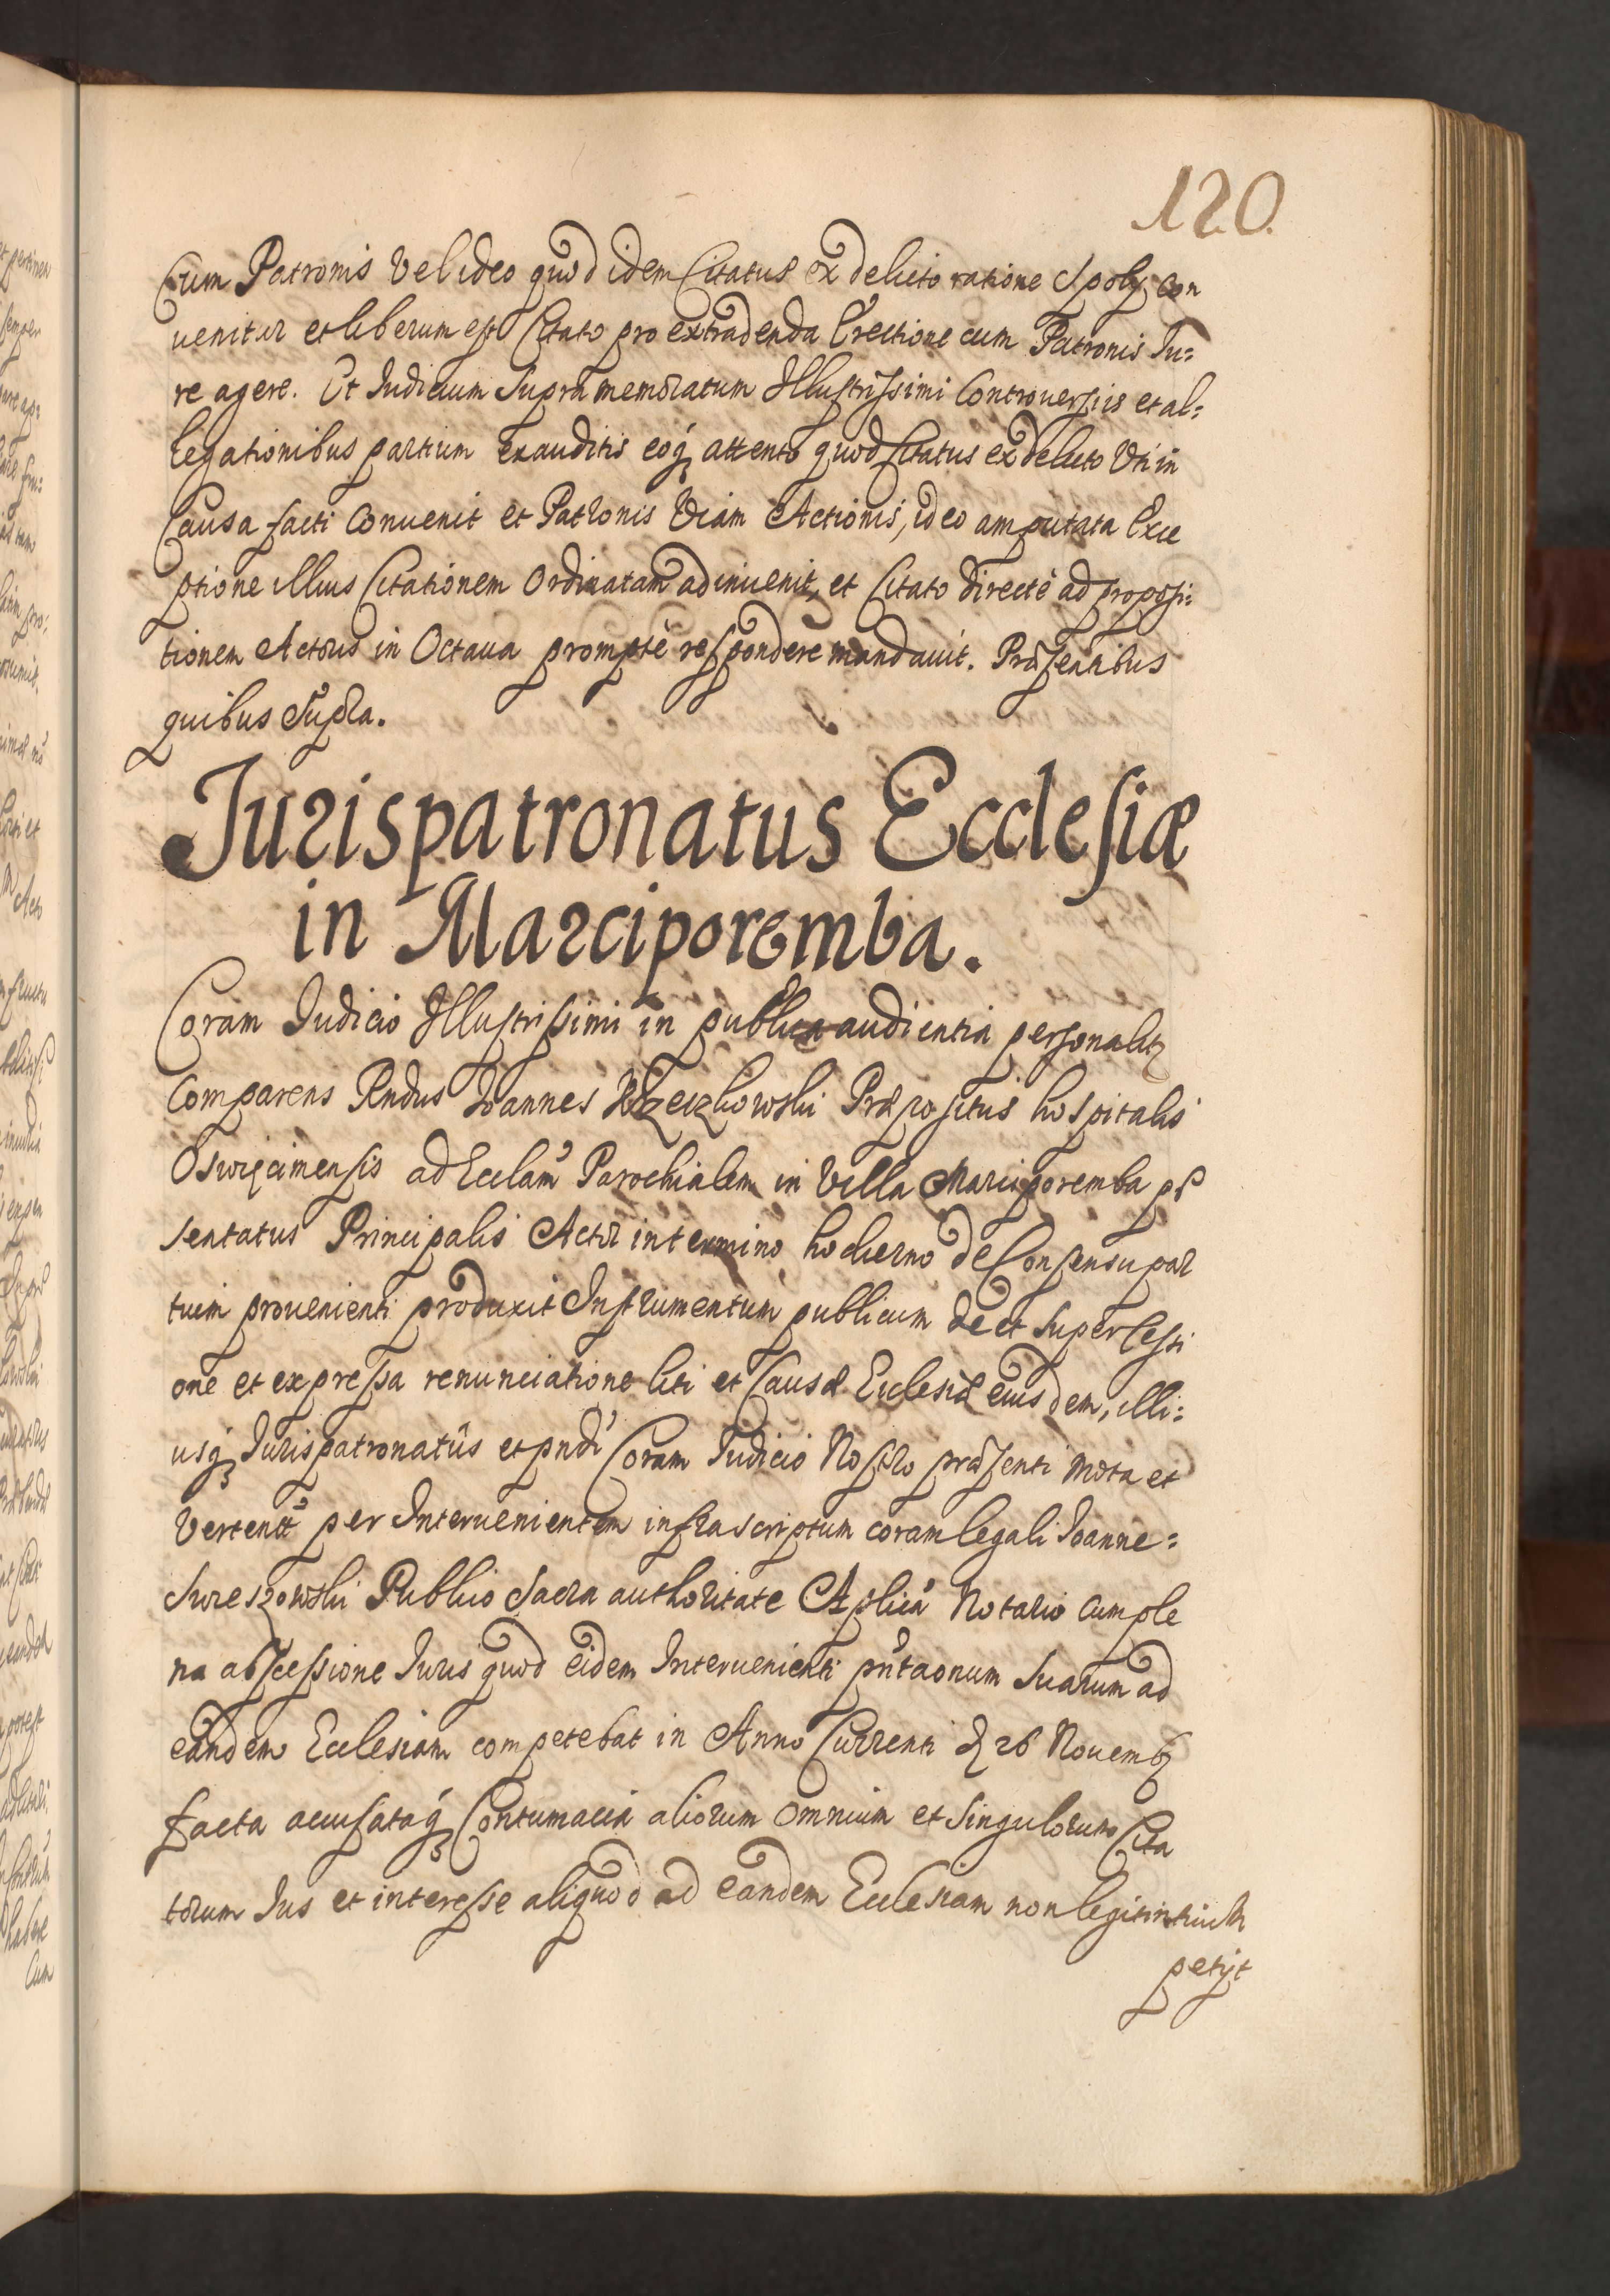 120.
Cum Patronis Vel ideo quod idem Citatus ex delicto ratione Spolÿ con
uenitur et liberum est Citato pro extradenda Erectione cum Patronis Iu=
re agere. Et Iudicium Supra memoratum Illustrissimi Controuersiis et al=
legationibus partium exauditis eoq attento quod Citatus ex delicto Vti in
Causa facti Conuenit et Patronis Viam Actionis, ideo amputata Exce
ptione illius Citationem Ordinatam adinuenit, et Citato directè ad proposi=
tionem Actoris in Octaua promptè respondere mandauit. Præsentibus
quibus Supra.
Jurispatronatus Ecclesiæ
in Marciporemba.
Coram Iudicio Illustrissimi in publica audientia personalit
Comparens Rndus Ioannes Præpositus hospitalis
Oswięcimensis ad Ecclam Parochialem in Villa Marciporemba præ
sentatus Principalis Actor in termino hodierno de Consensu par
tium prouenienti produxit Instrumentum publicum de et super Cessi
one et expressa renunciatione liti et Causæ Ecclesiæ eiusdem, illi=
usq Iurispatronatûs et pndi Coram Iudicio Nostro præsenti mota et
Verten per Interuenientem infrascriptum coram legali Ioanne=
Swieszowski Publico Sacra authoritate Aplica Notario cum ple
na abscessione Iuris quod eidem Interuenienti pntaonum Suarum ad
eandem Ecclesiam competebat in Anno Currenti d 26 Nouemb
facta accusataq Contumacia aliorum omnium et singulorum Cita
torum Ius et interesse aliquod ad eandem Ecclesiam non
petÿt